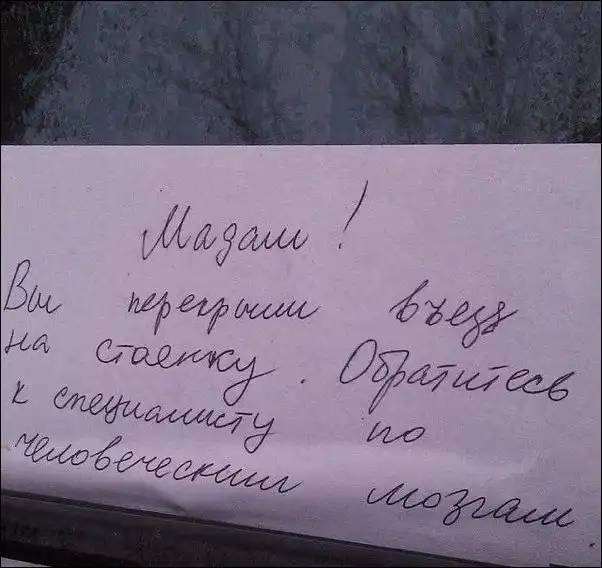 Мадам!
Вы перекрыли въезд
на стоянку. Обратитесь
к специалисту по
человеческим мозгам.